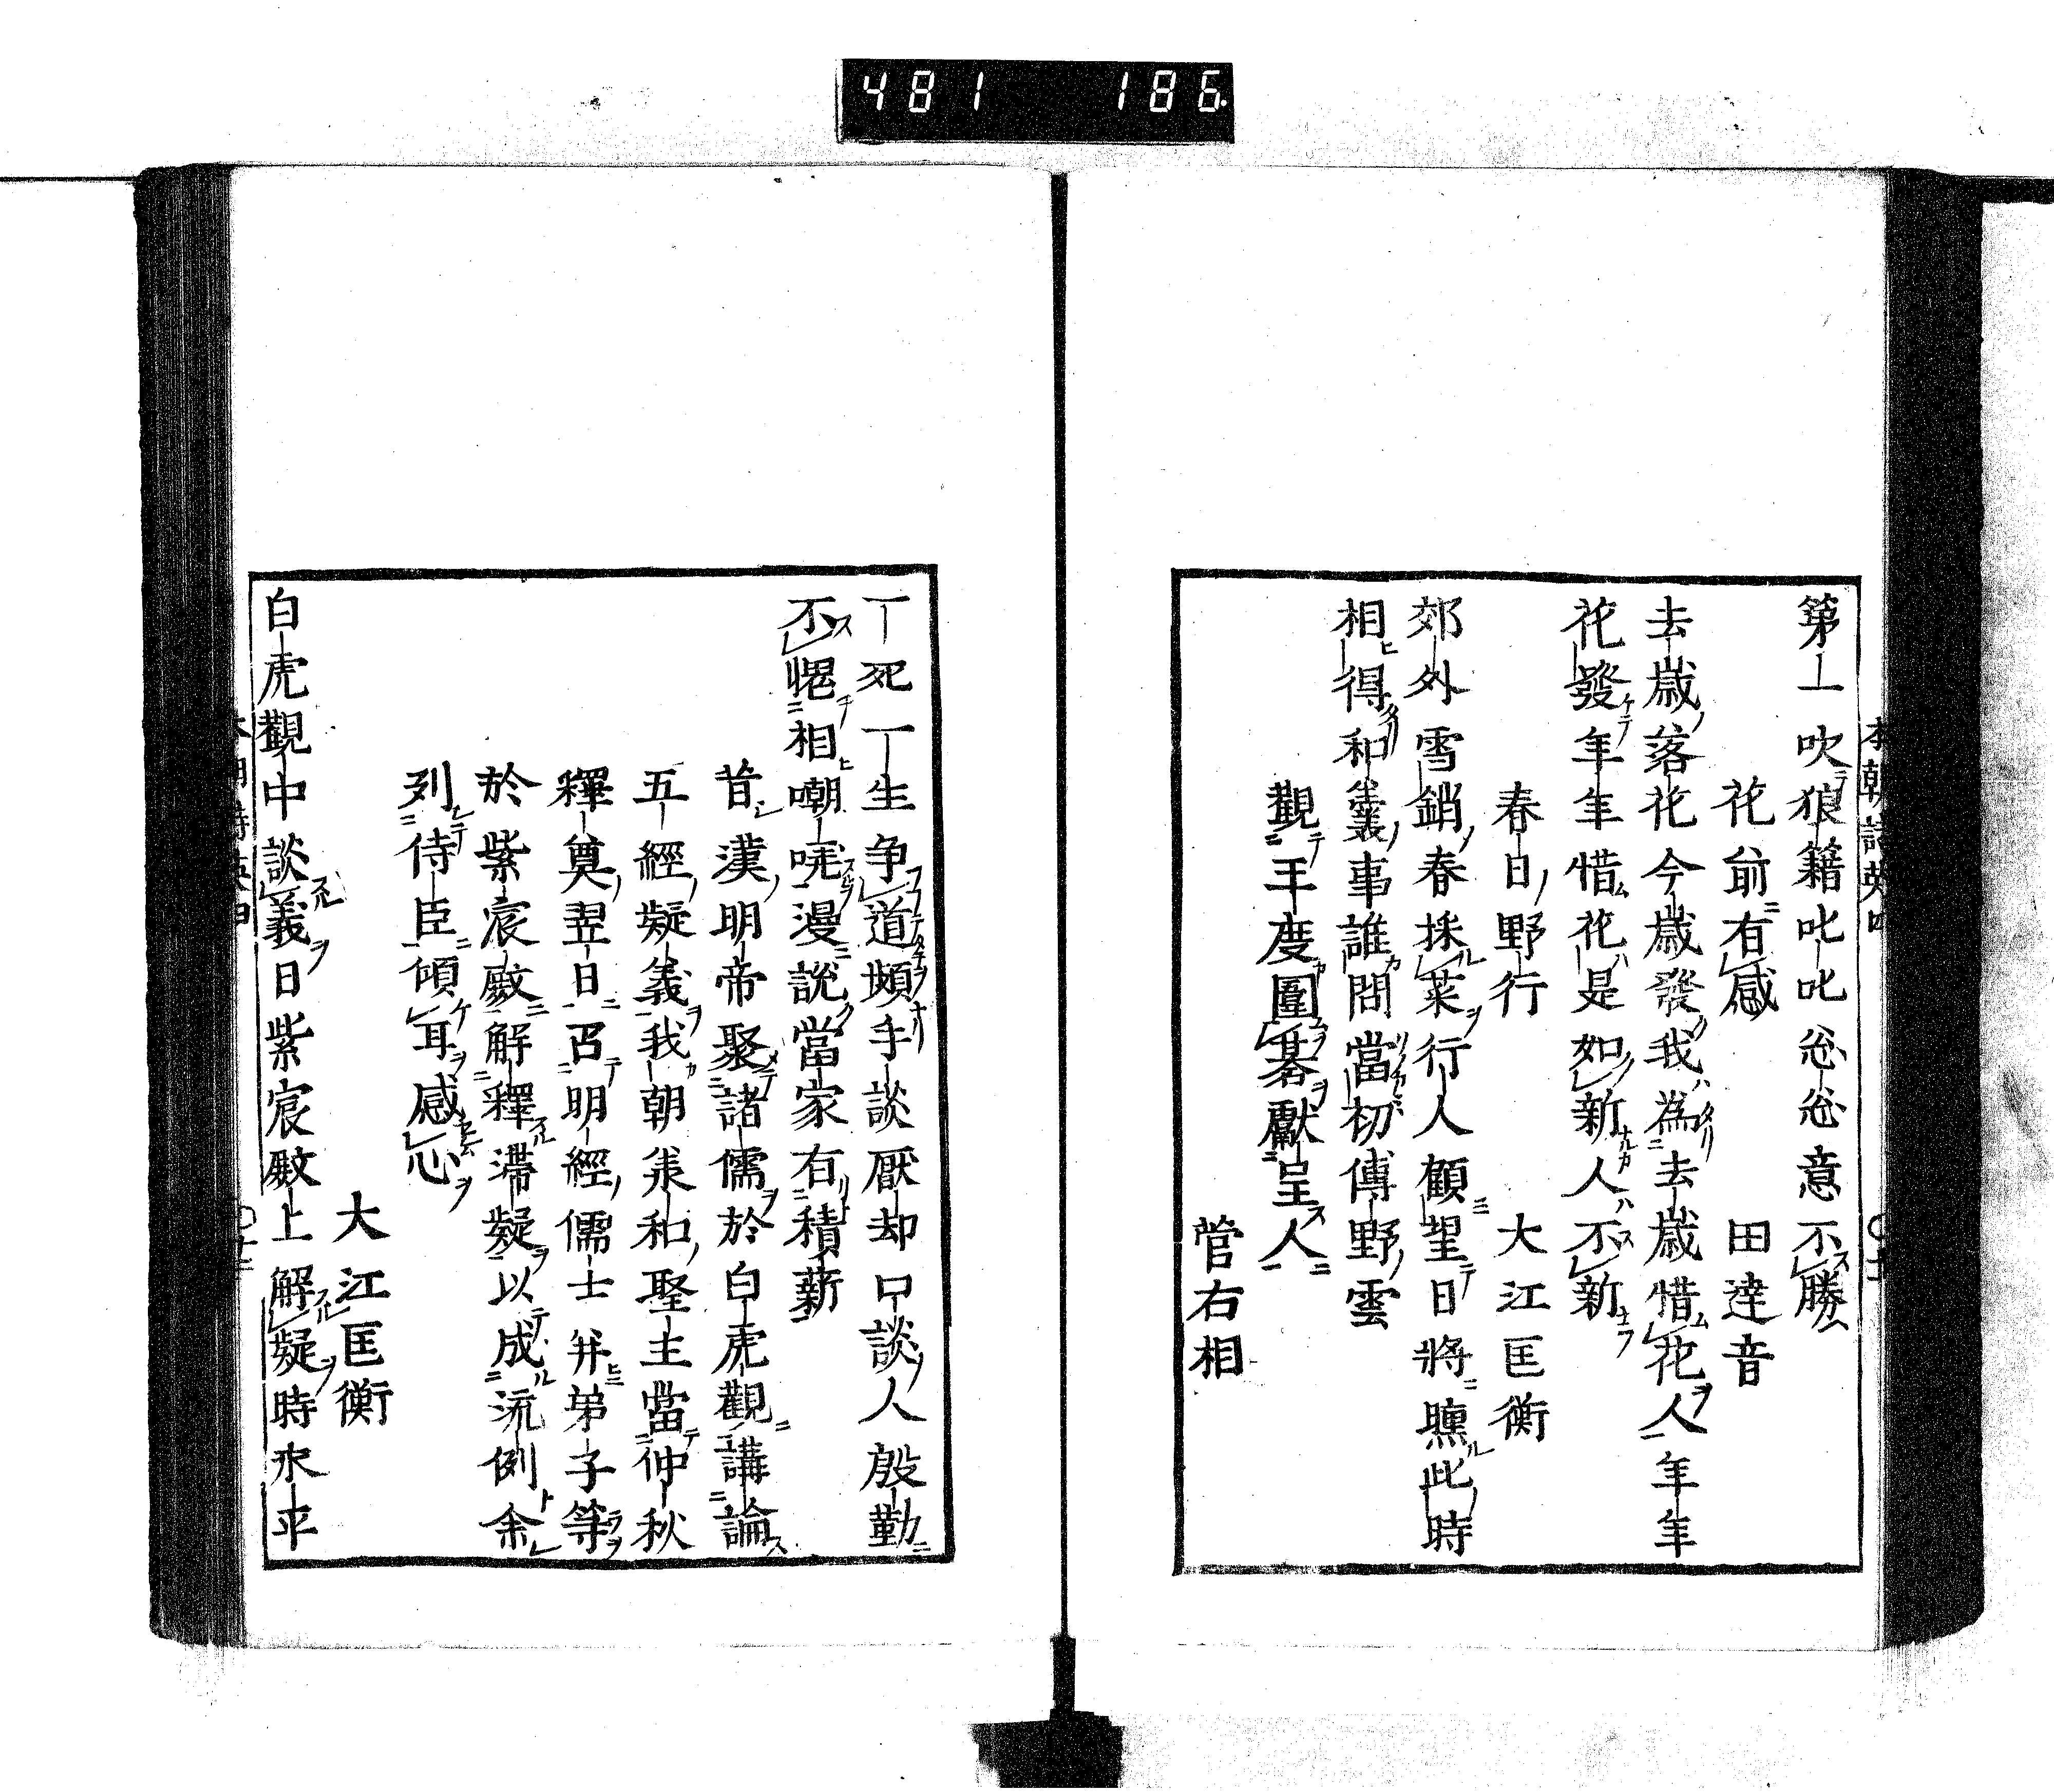 481 186
本朝詩英四
第一吹狼籍叱叱忩忩意不勝
花前有感 田達音
去歲落花今歲發我為去歲惜花人年年
花發年年惜花是如新人不新
春日野行 大江匡衡
郊外雪銷春採菜行人顧望日將曛此時
相得和羹事誰問當初傅野雲
觀王度圍碁獻呈人
菅右相
一死一生爭道頻手談厭却口談人殷勤
不愢相嘲哢漫說當家有積薪
昔漢明帝聚諸儒於白虎觀講論
五經疑義我朝承和聖主當仲秋
釋奠翌日召明經儒士并弟子等
於紫宸殿解釋滯疑以成流例余
列侍臣傾耳感心
大江匡衡
白虎觀中談義日紫宸殿上解疑時永平